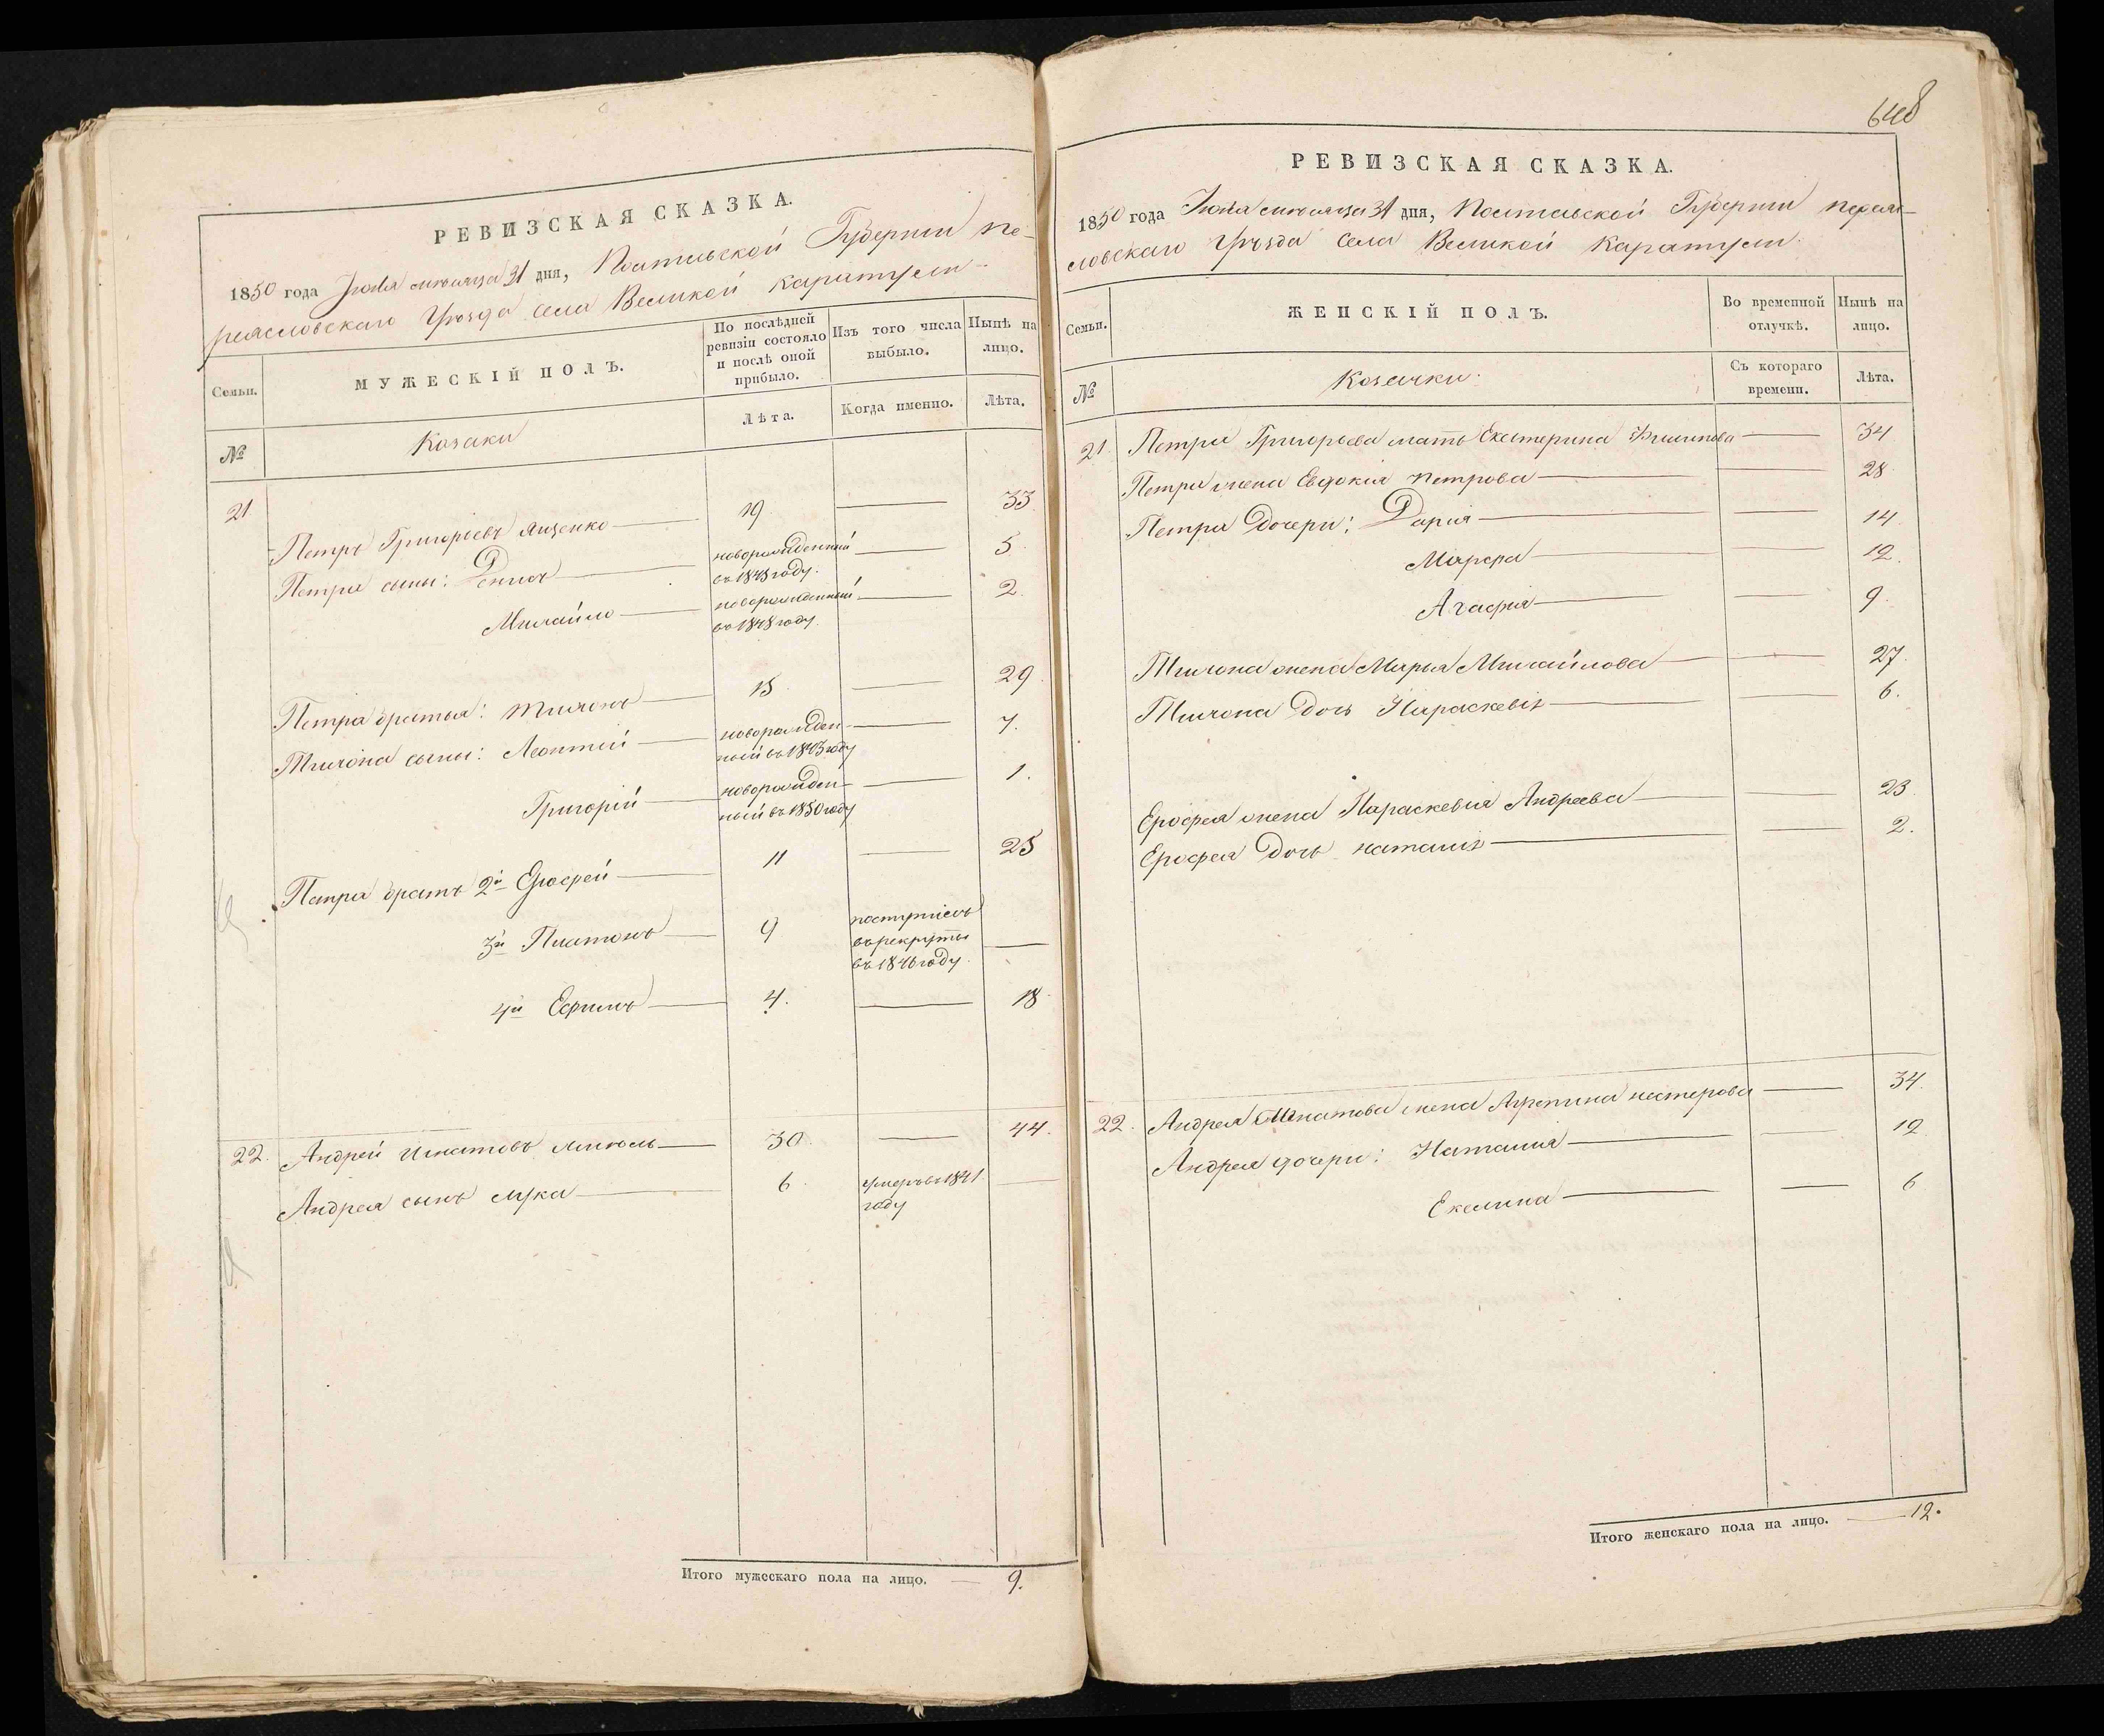 РЕВИЗСКАЯ СКАЗКА.
1850 года Июля месяца 31 дня, Полтавской Губернии Пе-
реясловскаго Уѣзда села Великой Каратули
Семьи.
МУЖЕСКІЙ ПОЛЪ.
По послѣдней ревизіи состояло и послѣ оной прибыло.
Изъ того числа выбыло.
Нынѣ на лицо.
№
Козаки
Лѣта.
Когда именно.
Лѣта.
21 Петръ Григорьевъ Яценко 19 33
Петра сыны: Денис новорожденный въ 1845 году. 5
Михайло новорожденный въ 1848 году. 2.
Петра братья: Тихонъ 15 29
Тихона сыны: Леонтій новорожденный въ 1843 году 7.
Григорій новорожденный въ 1850 году 1.
Петра братъ 2й Ерофей 11 25
3й Платонъ 9 поступилъ въ рекруты въ 1846 году.
4й Ефимъ 4. 18
22. Андрей Игнатовъ 30. 44.
Андрея сынъ Лука 6 умеръ въ 1841 году
Итого мужескаго пола на лицо. 9.
648
РЕВИЗСКАЯ СКАЗКА.
1850 года Июля месяца 31 дня, Полтавской Губернии Переяс-
ловскаго Уѣзда села Великой Каратули.
Семьи.
ЖЕНСКІЙ ПОЛЪ.
Во временной отлучкѣ.
Нынѣ на лицо.
№
Козачки.
Съ котораго времени.
Лѣта.
21. Петра Григорьева мать Екатерина Филипова 34
Петра жена Евдокія Петрова 28
Петра дочери: Дарія 14
Марфа 12.
Агафія 9.
Тихона жена Марья Михайлова 27.
Тихона дочь Параскевія 6.
Ерофея жена Параскевія Андреева 23
Ерофея дочь Наталія 2.
22. Андрея Игнатова жена Агрепина Нестерова 34.
Андрея дочери: Наталія 12
Екелина 6
Итого женскаго пола на лицо. 12.